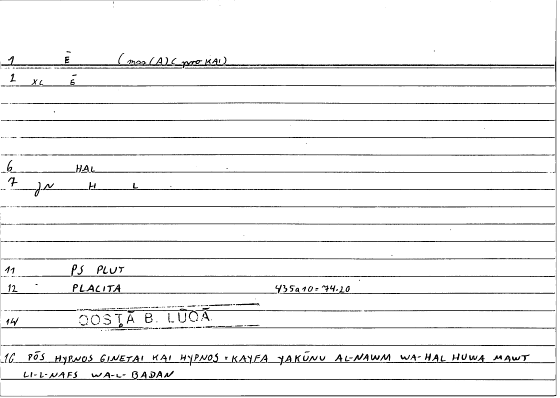 1 Ē (mss(A)C pro KAI)
2 XL Ē
6 HAL
7 JN H L
11 PS PLUT
12 PLACITA 435a10 = 74.20
14 QOSṬĀ B. LŪQĀ
16 PŌS HYPNOS GINETAI KAI HYPNOS = KAYFA YAKŪNU AL-NAWM WA-HAL HUWA MAWT
LI-L-NAFS WA-L-BADAN